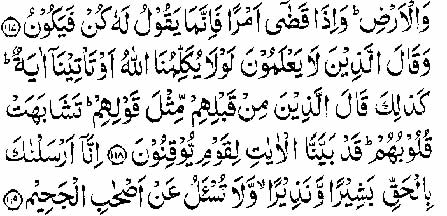 وَالْاَرْضِ ؕ وَاِذَا قَضٰۤى اَمْرًا فَاِنَّمَا يَقُوْلُ لَهٗ كُنْ فَيَكُوْنُ ﴿۱۱۷﴾
وَقَالَ الَّذِيْنَ لَا يَعْلَمُوْنَ لَوْلَا يُكَلِّمُنَا اللّٰهُ اَوْ تَاْتِيْنَاۤ اٰيَةٌ ؕ
كَذٰلِكَ قَالَ الَّذِيْنَ مِنْ قَبْلِهِمْ مِّثْلَ قَوْلِهِمْ ؕ تَشَابَهَتْ
قُلُوْبُهُمْ ؕ قَدْ بَيَّنَّا الْاٰيٰتِ لِقَوْمٍ يُّوْقِنُوْنَ ﴿۱۱۸﴾ اِنَّاۤ اَرْسَلْنٰكَ
بِالْحَقِّ بَشِيْرًا وَّنَذِيْرًا ۙ وَّلَا تُسْـَٔلُ عَنْ اَصْحٰبِ الْجَحِيْمِ ﴿۱۱۹﴾